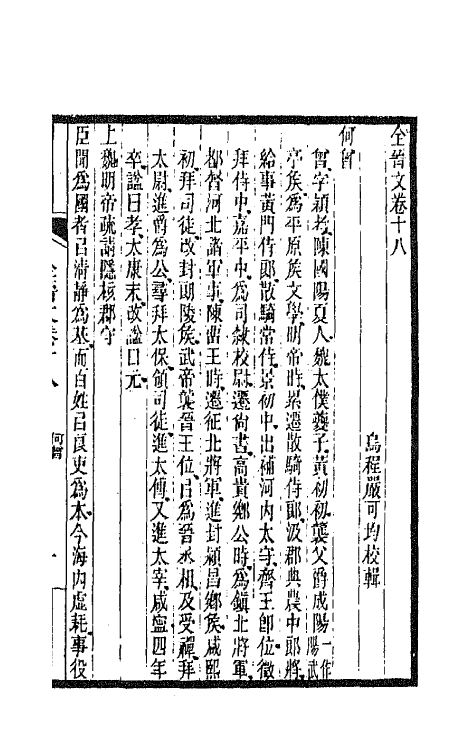 全晉文卷十八
烏程嚴可均校輯
何曾
曾字穎考陳國陽夏人魏太僕夔子黃初初襲父爵成陽一作陽武
亭矦爲平原矦文學明帝時累遷散騎侍郞汲郡典農中郞將
給事黃門侍郞散騎常侍景初中出補河內太守齊王卽位徵
拜侍中嘉平中爲司隸校尉遷尙書高貴鄉公時爲鎮北將軍
都督河北諸軍事陳畱王時遷征北將軍進封潁昌鄉矦咸熙
初拜司徒改封朗陵矦武帝襲晉王位㠯爲晉丞相及受禪拜
太尉進爵爲公尋拜太保領司徒進太傅又進太宰咸寧四年
卒諡曰孝太康末改諡曰元
上魏明帝疏請隱核郡守
臣聞爲國者㠯清靜爲基而百姓㠯良吏爲本今海內虛耗事役
全晉文卷十八
何曾
一